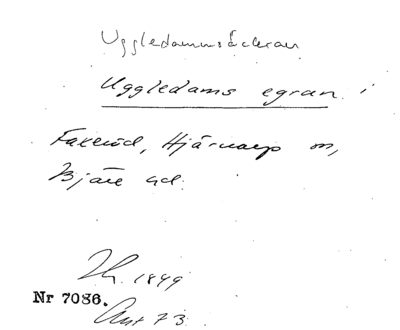 Uggledammsåckran
Uggledams egran i
Faxeröd, Hjärnarp sn,
Bjäre hd.
1849
Nr 7086.
Ant 73